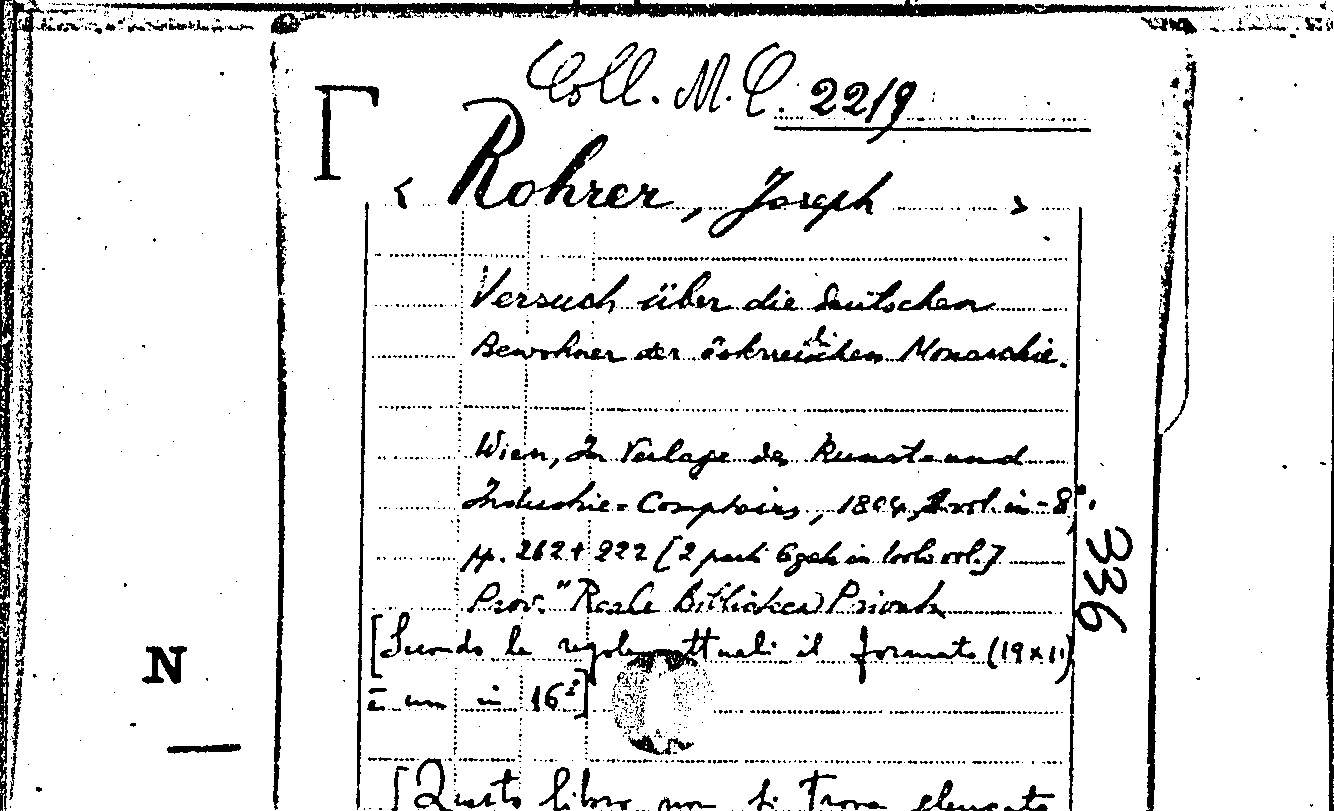 Coll. M. C. 2219
Γ
< Rohrer, Joseph >
Versuch über die deutschen
Bewohner der österreichischen Monarchie.
Wien, In Verlage des Kunst- und
Industrie-Comptoirs, 1804, 2 vol. in-8°,
pp. 262 + 222 [2 parti legate in
Prov. "Reale Biblioteca Privata
[Secondo le regole attuali il formato (19x11)
è un in 16°]
336
N
[Questo libro non si trova elencato